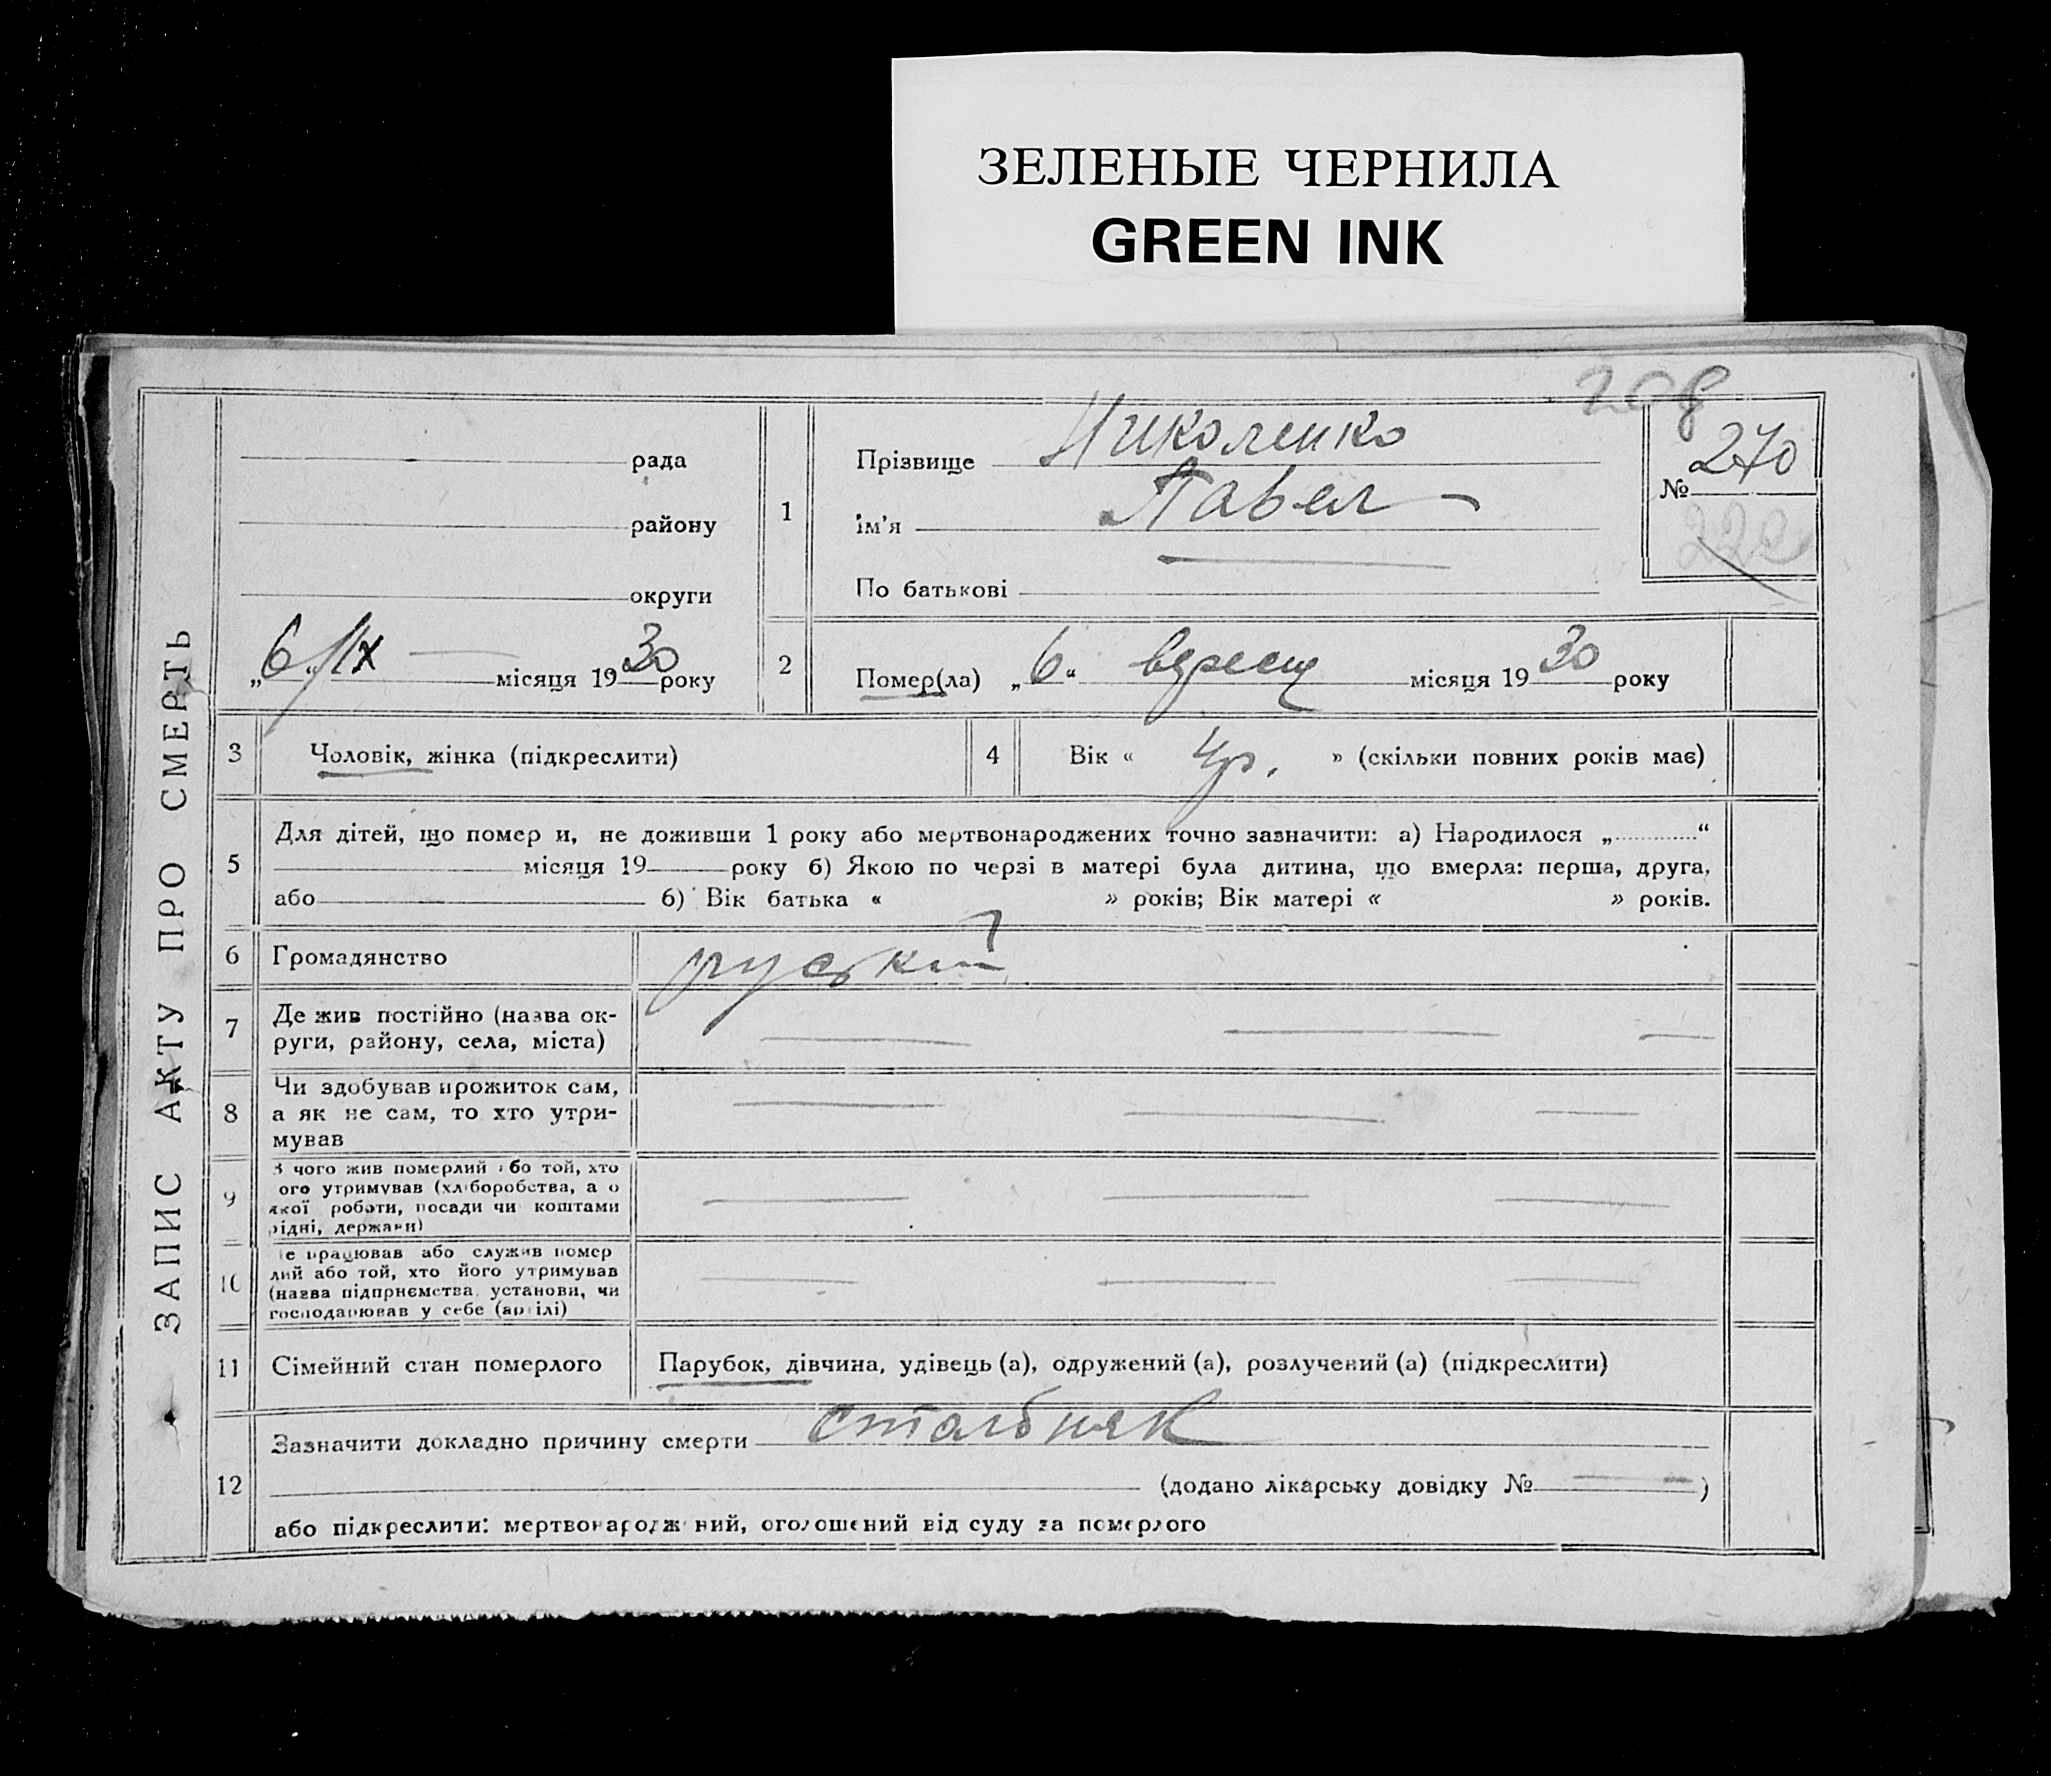 ЗЕЛЕНЫЕ ЧЕРНИЛА
GREEN INK
208
ЗАПИС АКТУ ПРО СМЕРТЬ
рада
району
округи
„6“ IX місяця 1930 року
1
Прізвище Николенко
Ім'я Павел
По батькові
№ 270
2
Помер(ла) „6“ вересц місяця 1930 року
3 Чоловік, жінка (підкреслити)
4 Вік « 4р. » (скільки повних років має)
5
Для дітей, що помер и, не доживши 1 року або мертвонароджених точно зазначити: а) Народилося „ “
місяця 19 року б) Якою по черзі в матері була дитина, що вмерла: перша, друга,
або б) Вік батька « » років; Вік матері « » років.
6 Громадянство руський
7 Де жив постійно (назва ок-
руги, району, села, міста)
8 Чи здобував прожиток сам,
а як не сам, то хто утри-
мував
9 З чого жив померлий або той, хто
ого утримував (хліборобства, а о
якої роботи, посади чи коштами
рідні, держави)
10 е працював або служив помер
лий або той, хто його утримував
(назва підприємства, установи, чи
господарював у себе (артілі)
11 Сімейний стан померлого Парубок, дівчина, удівець (а), одружений (а), розлучений (а) (підкреслити)
12 Зазначити докладно причину смерти столбняк
(додано лікарську довідку № )
або підкреслити: мертвонароджений, оголошений від суду за померлого